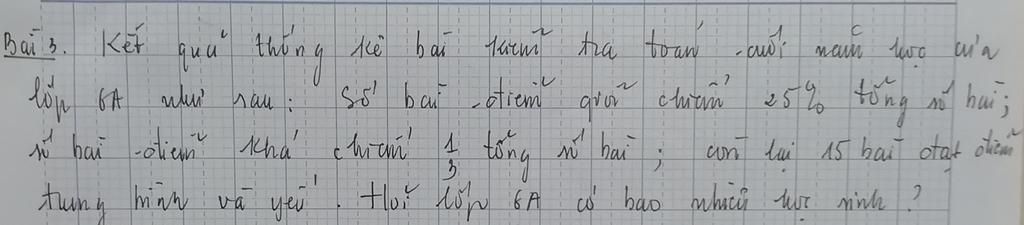 Bài 3. Kết quả thống kê bài kiểm tra toán cuối năm học của
lớp 6A như sau: Số bài điểm giỏi chiếm 25% tổng số bài;
số bài điểm khá chiếm 1/3 tổng số bài; còn lại 15 bài đạt điểm
trung bình và yếu. Hỏi lớp 6A có bao nhiêu học sinh?